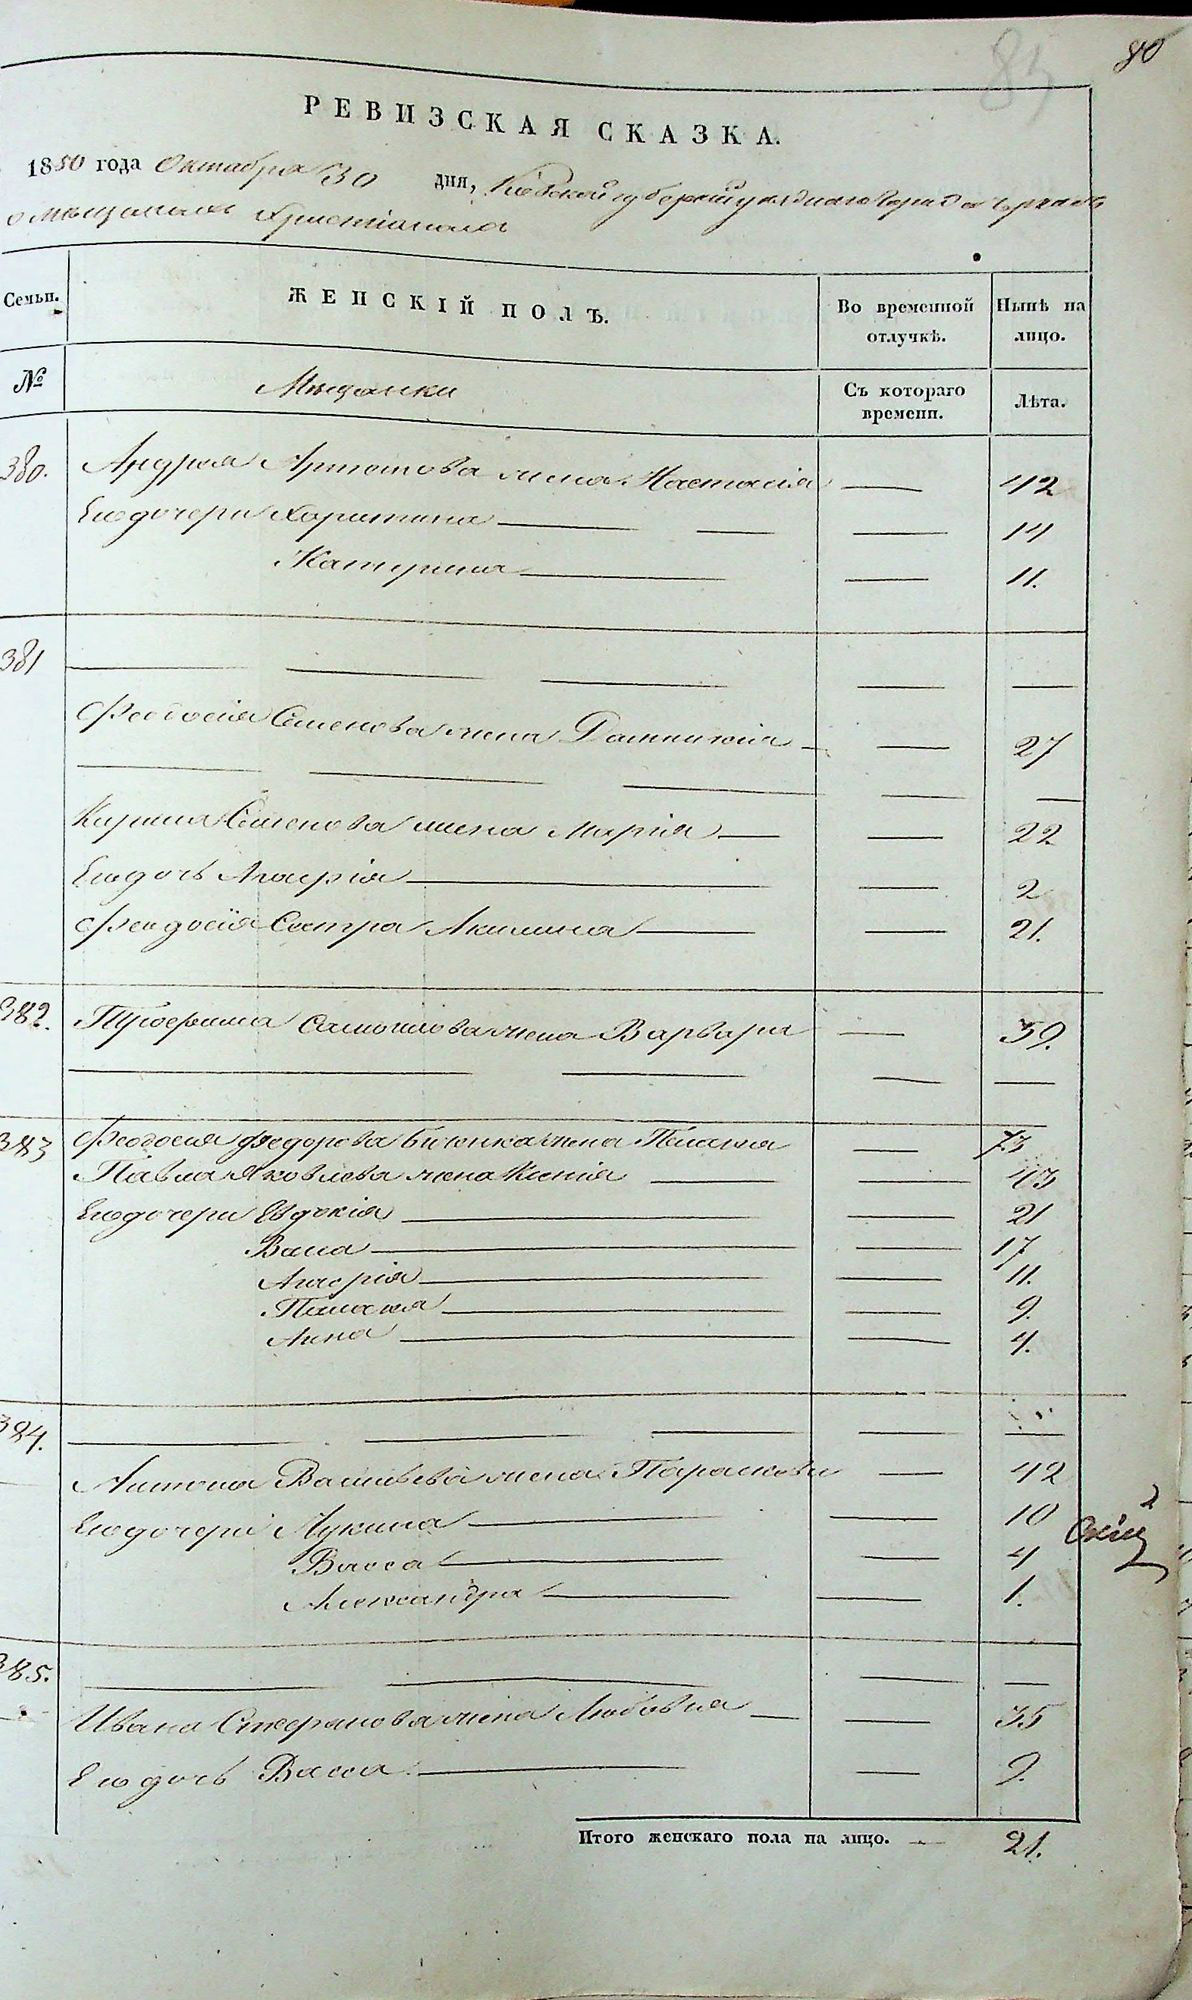 80
83
РЕВИЗСКАЯ СКАЗКА.
1850 года Октября 30 дня, Кіевской губерніи уѣзднаго города
о мѣщанахъ Христіанахъ
Семьи. ЖЕНСКІЙ ПОЛЪ. Во временной отлучкѣ. Нынѣ на лицо.
№ Мѣщанки Съ котораго времени. Лѣта.
380. Андрея Артемова жена Настасія — 42
Его дочери Харитина — 14
Катерина — 11.
381
Феодосія Семенова жена Домникія — 27
Кирила Семенова жена Марія — 22
Его дочь Агафія — 2
Феодосія Сестра Акилина — 21.
382. Самойлова жена Варвара — 39.
383 Феодосія Федорова жена Пелагія — 73
Павла Яковлева жена Ксенія — 43
Его дочери Евдокія — 21
Васса — 17
Агафія — 11.
Пелагея — 9.
Анна — 4.
384.
Антона Васильева жена Параскева — 42
Его дочери Лукина — 10
Васса — 4
Александра — 1.
385.
Ивана Стефанова жена Любовна — 35
Его дочь Васса — 9.
Итого женскаго пола на лицо. — 21.